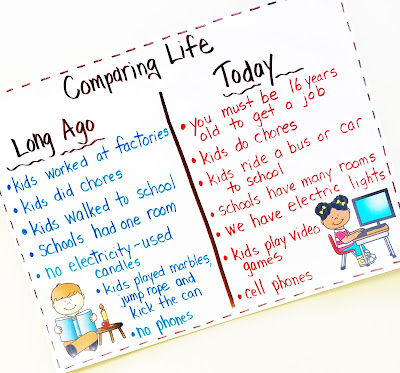 Comparing Life
Long Ago
• kids worked at factories
• kids did chores
• kids walked to school
• schools had one room
• no electricity-used
candles
• kids played marbles,
jump rope and
kick the can
• no phones
Today
• you must be 16 years
old to get a job
• kids do chores
• kids ride a bus or car
to school
• schools have many rooms
• we have electric lights!
• kids play video
games
• cell phones